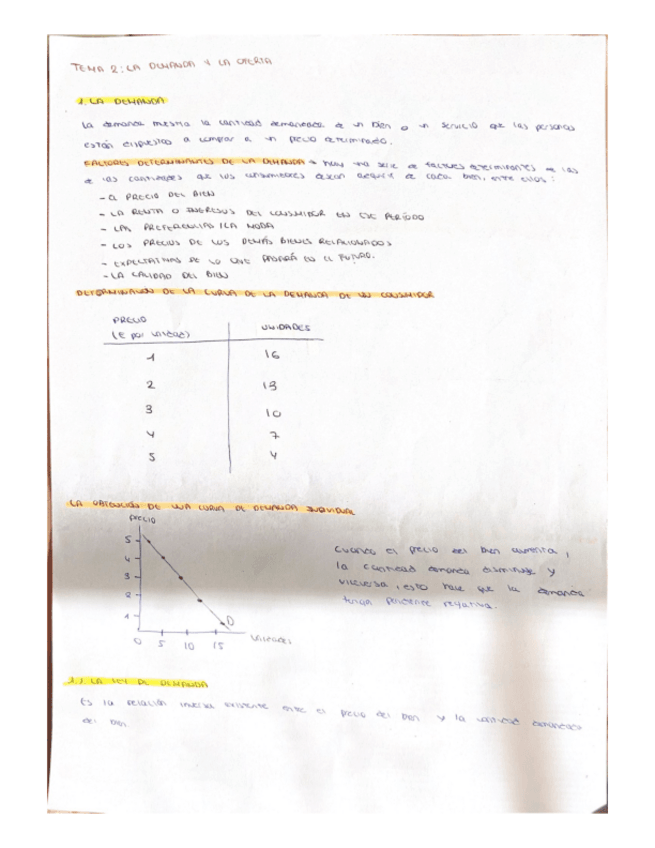 TEMA 2: LA DEMANDA Y LA OFERTA
1. LA DEMANDA
La demanda muestra la cantidad demandada de un bien o un servicio que las personas
están dispuestas a comprar a un precio determinado.
FACTORES DETERMINANTES DE LA DEMANDA → hay una serie de factores determinantes de las
de las cantidades que los consumidores desean adquirir de cada bien, entre ellos:
- EL PRECIO DEL BIEN
- LA RENTA O INGRESOS DEL CONSUMIDOR EN ESE PERÍODO
- LAS PREFERENCIAS / LA MODA
- LOS PRECIOS DE LOS DEMÁS BIENES RELACIONADOS
- EXPECTATIVAS DE LO QUE PASARÁ EN EL FUTURO.
- LA CALIDAD DEL BIEN
DETERMINACIÓN DE LA CURVA DE LA DEMANDA DE UN CONSUMIDOR
PRECIO
(€ por unidad) UNIDADES
1 16
2 13
3 10
4 7
5 4
LA OBTENCIÓN DE UNA CURVA DE DEMANDA INDIVIDUAL
PRECIO
5
4
3
2
1
D
0 5 10 15 Unidades
Cuando el precio del bien aumenta,
la cantidad demanda disminuye y
viceversa, esto hace que la demanda
tenga pendiente negativa.
1.1 LA LEY DE DEMANDA
Es la relación inversa existente entre el precio del bien y la cantidad demandada
del bien.